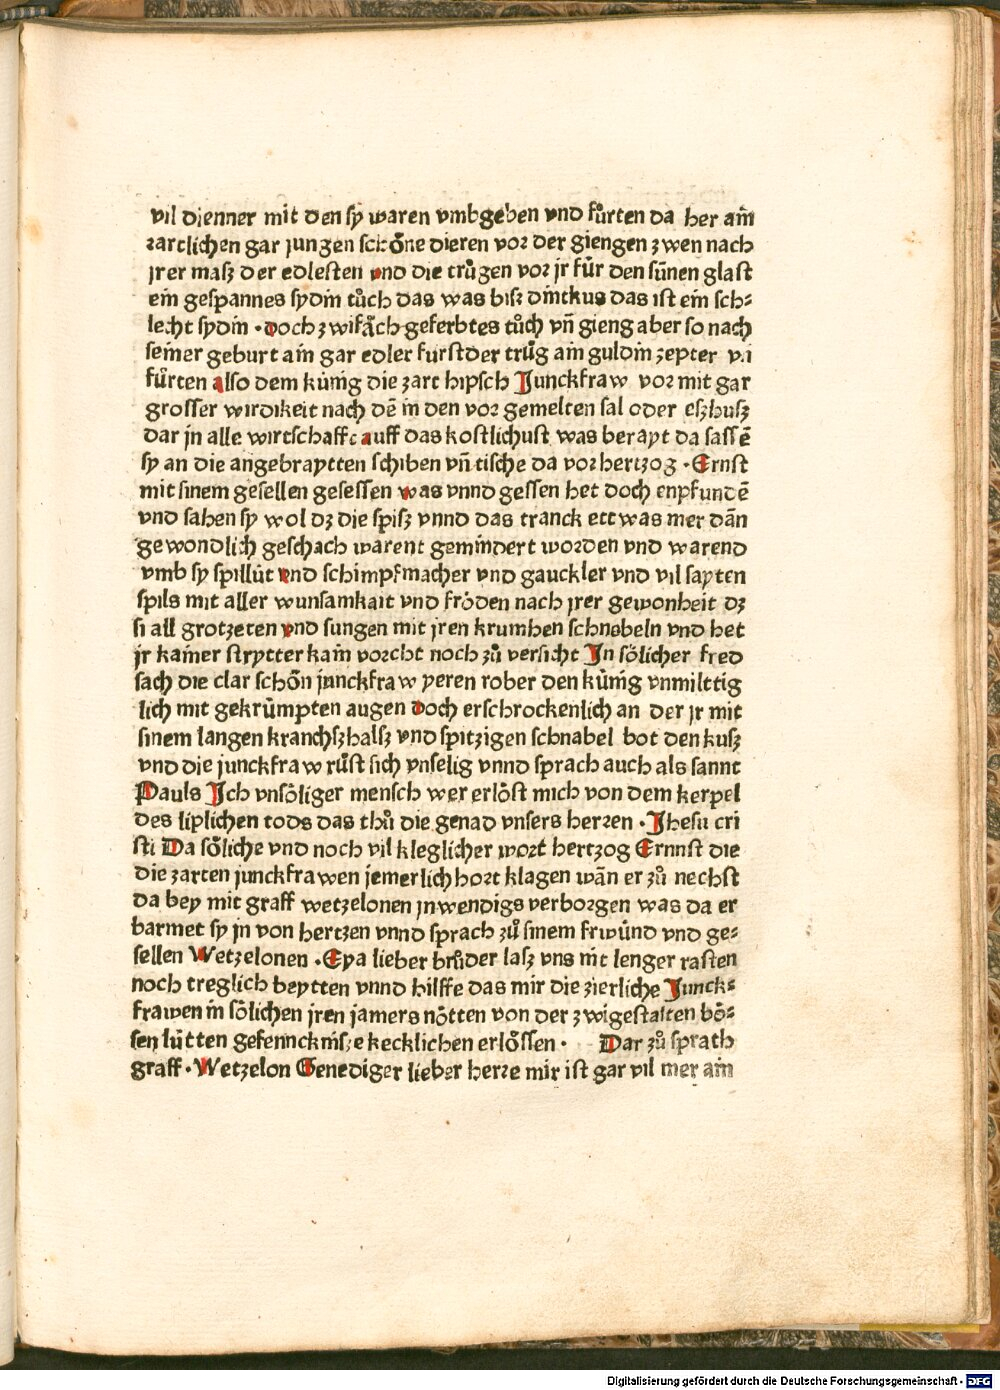 vil djenner mit den sy waren vmbgeben vnd fůrten da her am̄
zartlichen gar jungen schöne dieren vor der giengen zwen nach
jrer masz der edlesten vnd die trůgen vor jr für den sünen glast
ein gespannes sydin tůch das was bisz dmtkus das ist ein sch⸗
lecht sydin · doch zwifäch geferbtes tůch vn̄ gieng aber so nach
seiner geburt ain gar edler furst der trůg ain guldin zepter vn
fůrten also dem küing die zart hipsch Junckfraw vor mit gar
grosser wirdikeit nach dē in den vor gemelten sal oder eszhusz
dar jn alle wirtschafft auff das kostlichust was berayt da sassē
sy an die angebraytten schiben vn̄ tische da vor hertzog · Ernst
mit sinem gesellen gesessen was vnnd gessen het doch enpfundē
vnd sahen sy wol dz die spisz vnnd das tranck ettwas mer dān
gewondlich geschach warent gemindert worden vnd warend
vmb sy spillüt vnd schimpfmacher vnd gauckler vnd vil sayten
spils mit aller wunsamkait vnd fröden nach jrer gewonheit dz
si all grotzeten vnd sungen mit jren krumhen schnebeln vnd het
jr kam̄er strytter kain vorcht noch zů versicht In sölicher fred
sach die clar schön junckfraw yeren rober den küing vnmilttig
lich mit gekrümpten augen doch erschrockenlich an der jr mit
sinem langen kranchszhalsz vnd spitzigen schnabel bot den kusz
vnd die junckfraw rüst sich vnselig vnnd sprach auch als sannt
Pauls Jch vnsöliger mensch wer erlöst mich von dem kerpel
des liplichen tods das thů die genad vnsers herren · Jhesu cri
sti Da söliche vnd noch vil kleglicher wort hertzog Ernnst die
die zarten junckfrawen jemerlich hort klagen wān er zů nechst
da bey mit graff wetzelonen jnwendigs verborgen was da er
barmet sy jn von hertzen vnnd sprach zů sinem friwünd vnd ge⸗
sellen Wetzelonen · Eya lieber brůder lasz vns nit lenger rasten
noch treglich beytten vnnd hilffe das mir die zierliche Junck⸗
frawen in sölichen jren jamers nötten von der zwigestalten bö⸗
sen lütten gefennckniß,e kecklichen erlössen · Dar zů sprath
graff · Wetzelon Genediger lieber herre mir ist gar vil mer ain
Digitalisierung gefördert durch die Deutsche Forschungsgemeinschaft - DFG